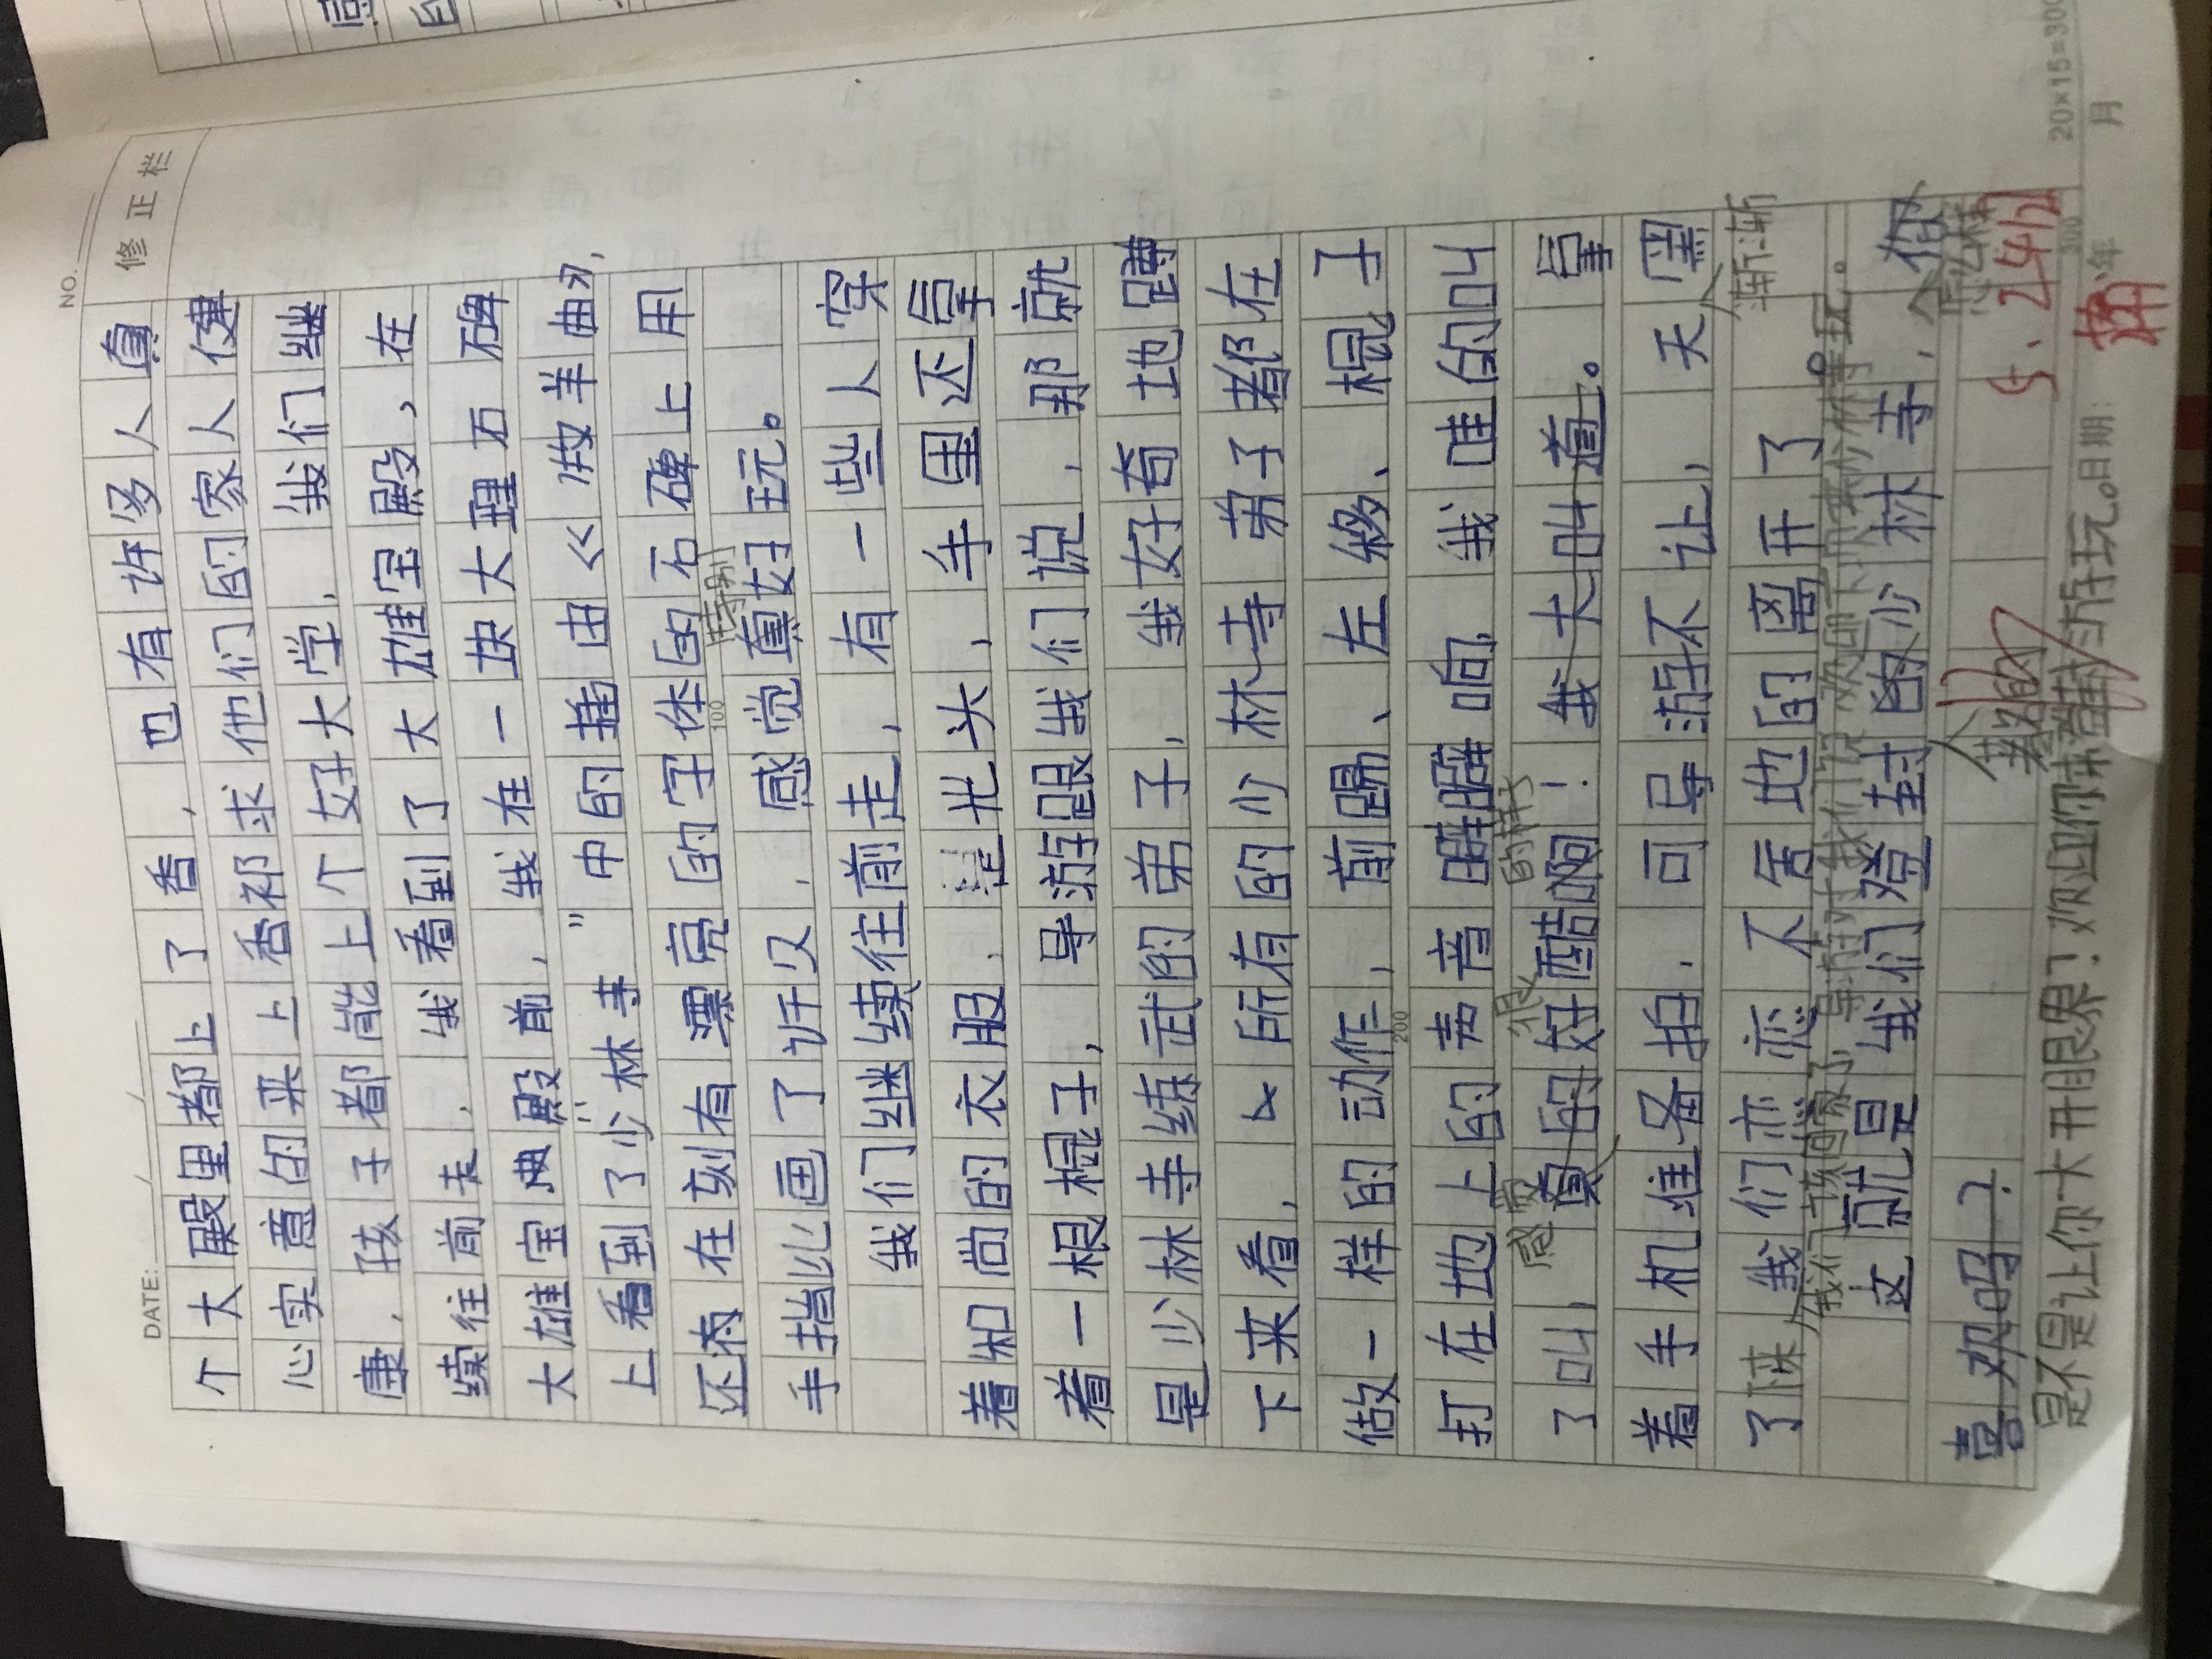 NO.
DATE: / /
修正栏
个大殿里都上了香，也有许多人真
心实意的来上香祁求他们的家人健
康，孩子都能上个好大学，我们继
续往前走，我看到了大雄宝殿，在
大雄宝殿前，我在一块大理石碑
上看到了少林寺”中的插曲《牧羊曲》，
还有在刻有漂亮的字体的石碑上用
特别
手描比画了许久，感觉真好玩。
我们继续往前走，有一些人穿
着和尚的衣服，是光头，手里还拿
着一根棍子，导游跟我们说，那就
是少林寺练武的弟子，我好奇地蹲
下来看，所有的少林寺弟子都在
做一样的动作，前踢、左移、棍子
打在地上的声音噼噼响，我哇的叫
的转
了叫，真的好酷啊！我大叫着。拿
感觉 很
着手机准备拍，可导游不让，天黑
渐渐
了下来，我们恋恋不舍地的离开了
我们该回家了，导游对我们说欢迎下次再来少林寺玩。
这就是我们登封的少林寺，你
怎么样
喜欢吗？
是不是让你大开眼界？欢迎你来登封游玩。
著名的
5、24/2
100
200
300
20×15=300
日期： 年 月